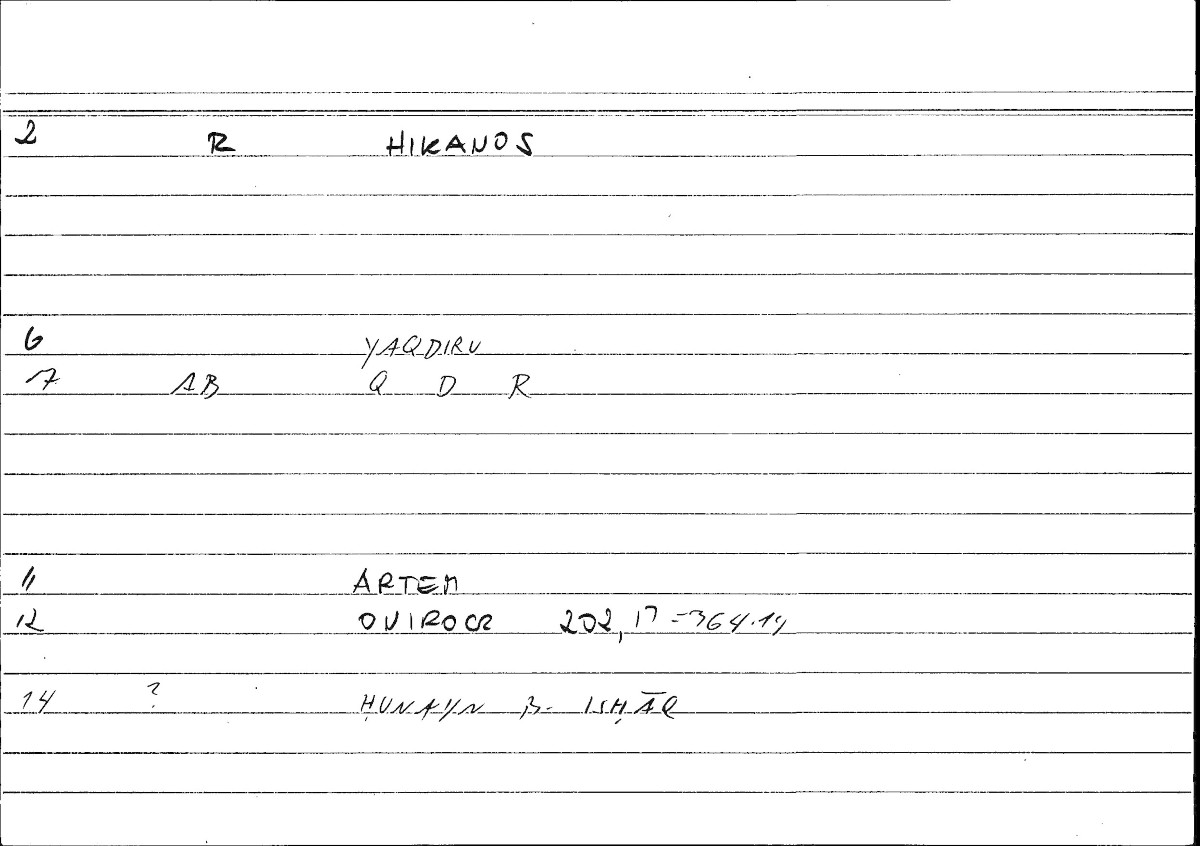 2 R HIKANOS
6 YAQDIRU
7 AB Q D R
11 ARTEM
12 ONIROCR 202,17=364.14
14 ? ḤUNAYN B. ISḤĀQ